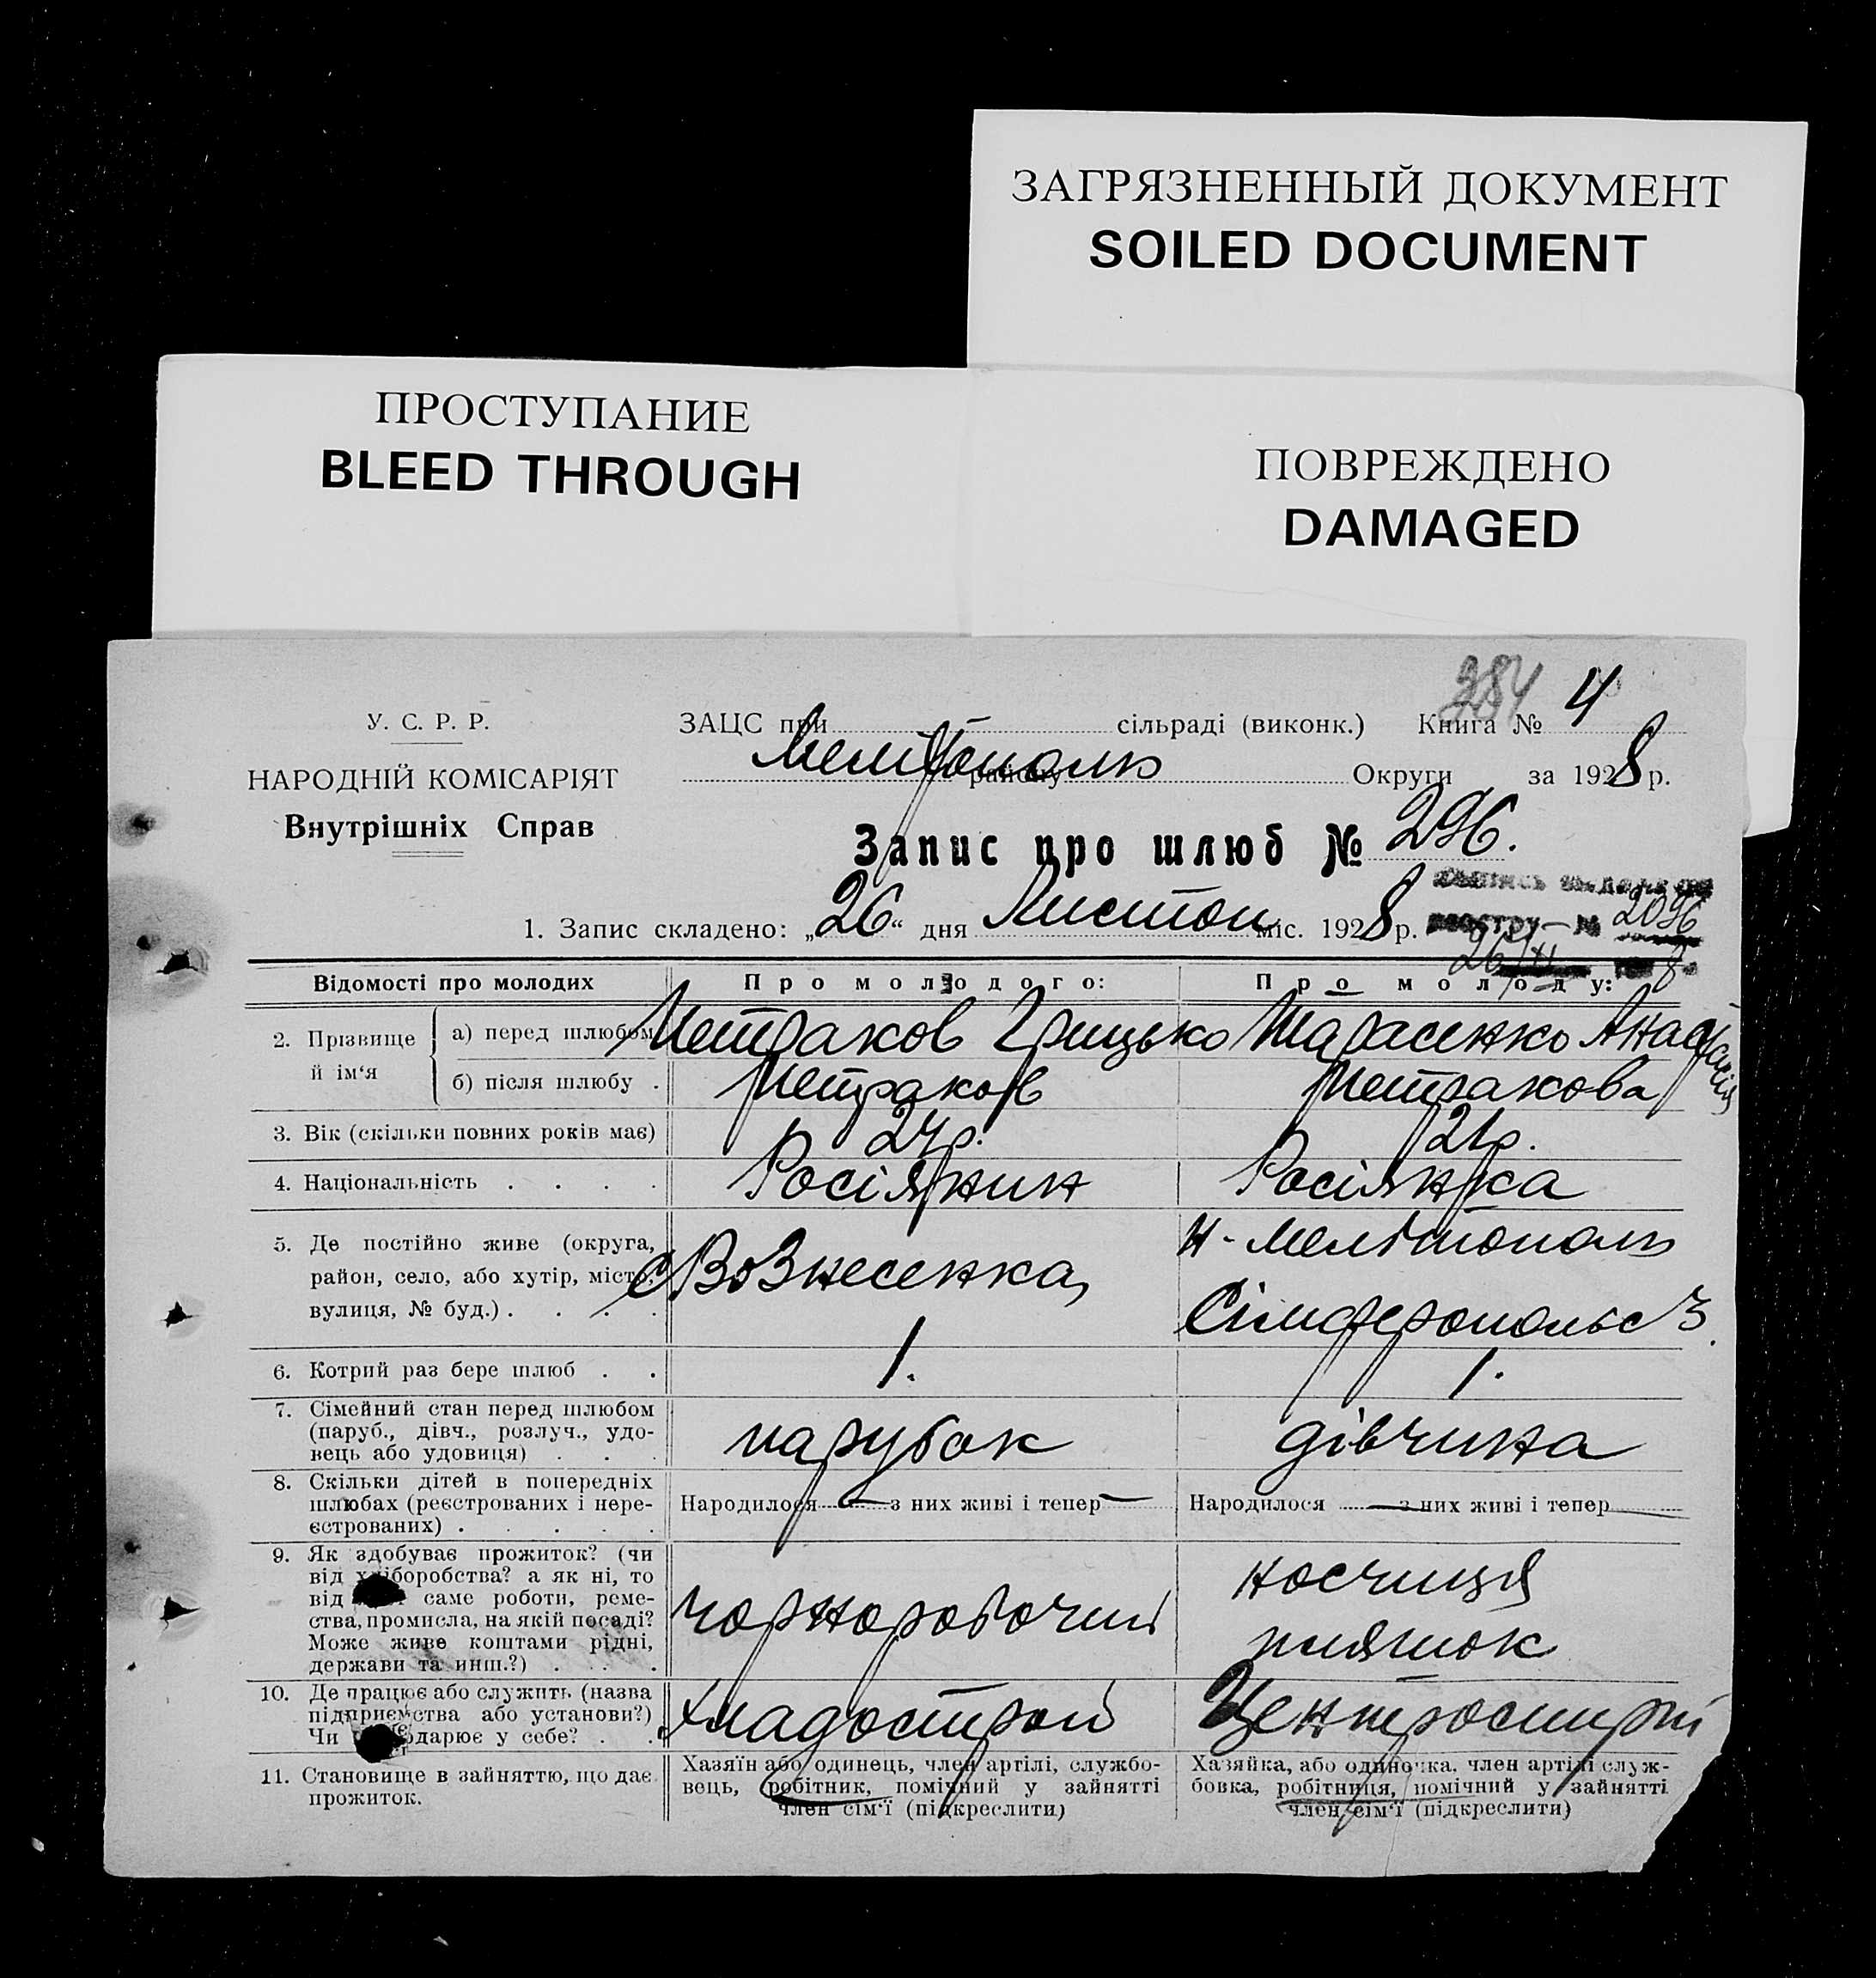 ЗАГРЯЗНЕННЫЙ ДОКУМЕНТ
SOILED DOCUMENT
ПРОСТУПАНИЕ
BLEED THROUGH
ПОВРЕЖДЕНО
DAMAGED
384
У. С. Р. Р.
НАРОДНІЙ КОМІСАРІЯТ
Внутрішніх Справ
ЗАЦС при сільраді (виконк.) Книга № 4
Мелітополь району Округи за 1928 р.
Запис про шлюб № 296.
1. Запис складено: „26“ дня Листоп міс. 1928 р.
реєстру № 2096
26/XI 8
Відомості про молодих
Про молодого:
Про молоду:
2. Прізвище й ім‘я
а) перед шлюбом
Петраков Грицько
Тарасенко Анастасія
б) після шлюбу .
Петраков
Петракова
3. Вік (скільки повних років має)
24 р.
21 р.
4. Національність . . . .
Росіянин
Росіянка
5. Де постійно живе (округа,
район, село, або хутір, місто,
вулиця, № буд.) . . . .
с Вознесенка,
Н-Мелітополь
Сімферопольс 3.
6. Котрий раз бере шлюб . .
1.
1.
7. Сімейний стан перед шлюбом
(паруб., дівч., розлуч., удо-
вець або удовиця) . . .
парубок
дівчина
8. Скільки дітей в попередніх
шлюбах (реєстрованих і нере-
єстрованих) . . . . .
Народилося — з них живі і тепер —
Народилося — з них живі і тепер
9. Як здобуває прожиток? (чи
від хліборобства? а як ні, то
від саме роботи, реме-
ства, промисла, на якій посаді?
Може живе коштами рідні,
держави та инш.?) . . .
чорноробочий
носчиця
пляшок
10. Де працює або служить (назва
підприємства або установи?)
Чи господарює у себе? . .
Хладострой
Центроспирт
11. Становище в зайняттю, що дає
прожиток.
Хазяїн або одинець, член артілі, службо-
вець, робітник, помічний у зайнятті
член сім‘ї (підкреслити)
Хазяйка, або одиночка, член артілі служ-
бовка, робітниця, помічний у зайнятті
член сім‘ї (підкреслити)